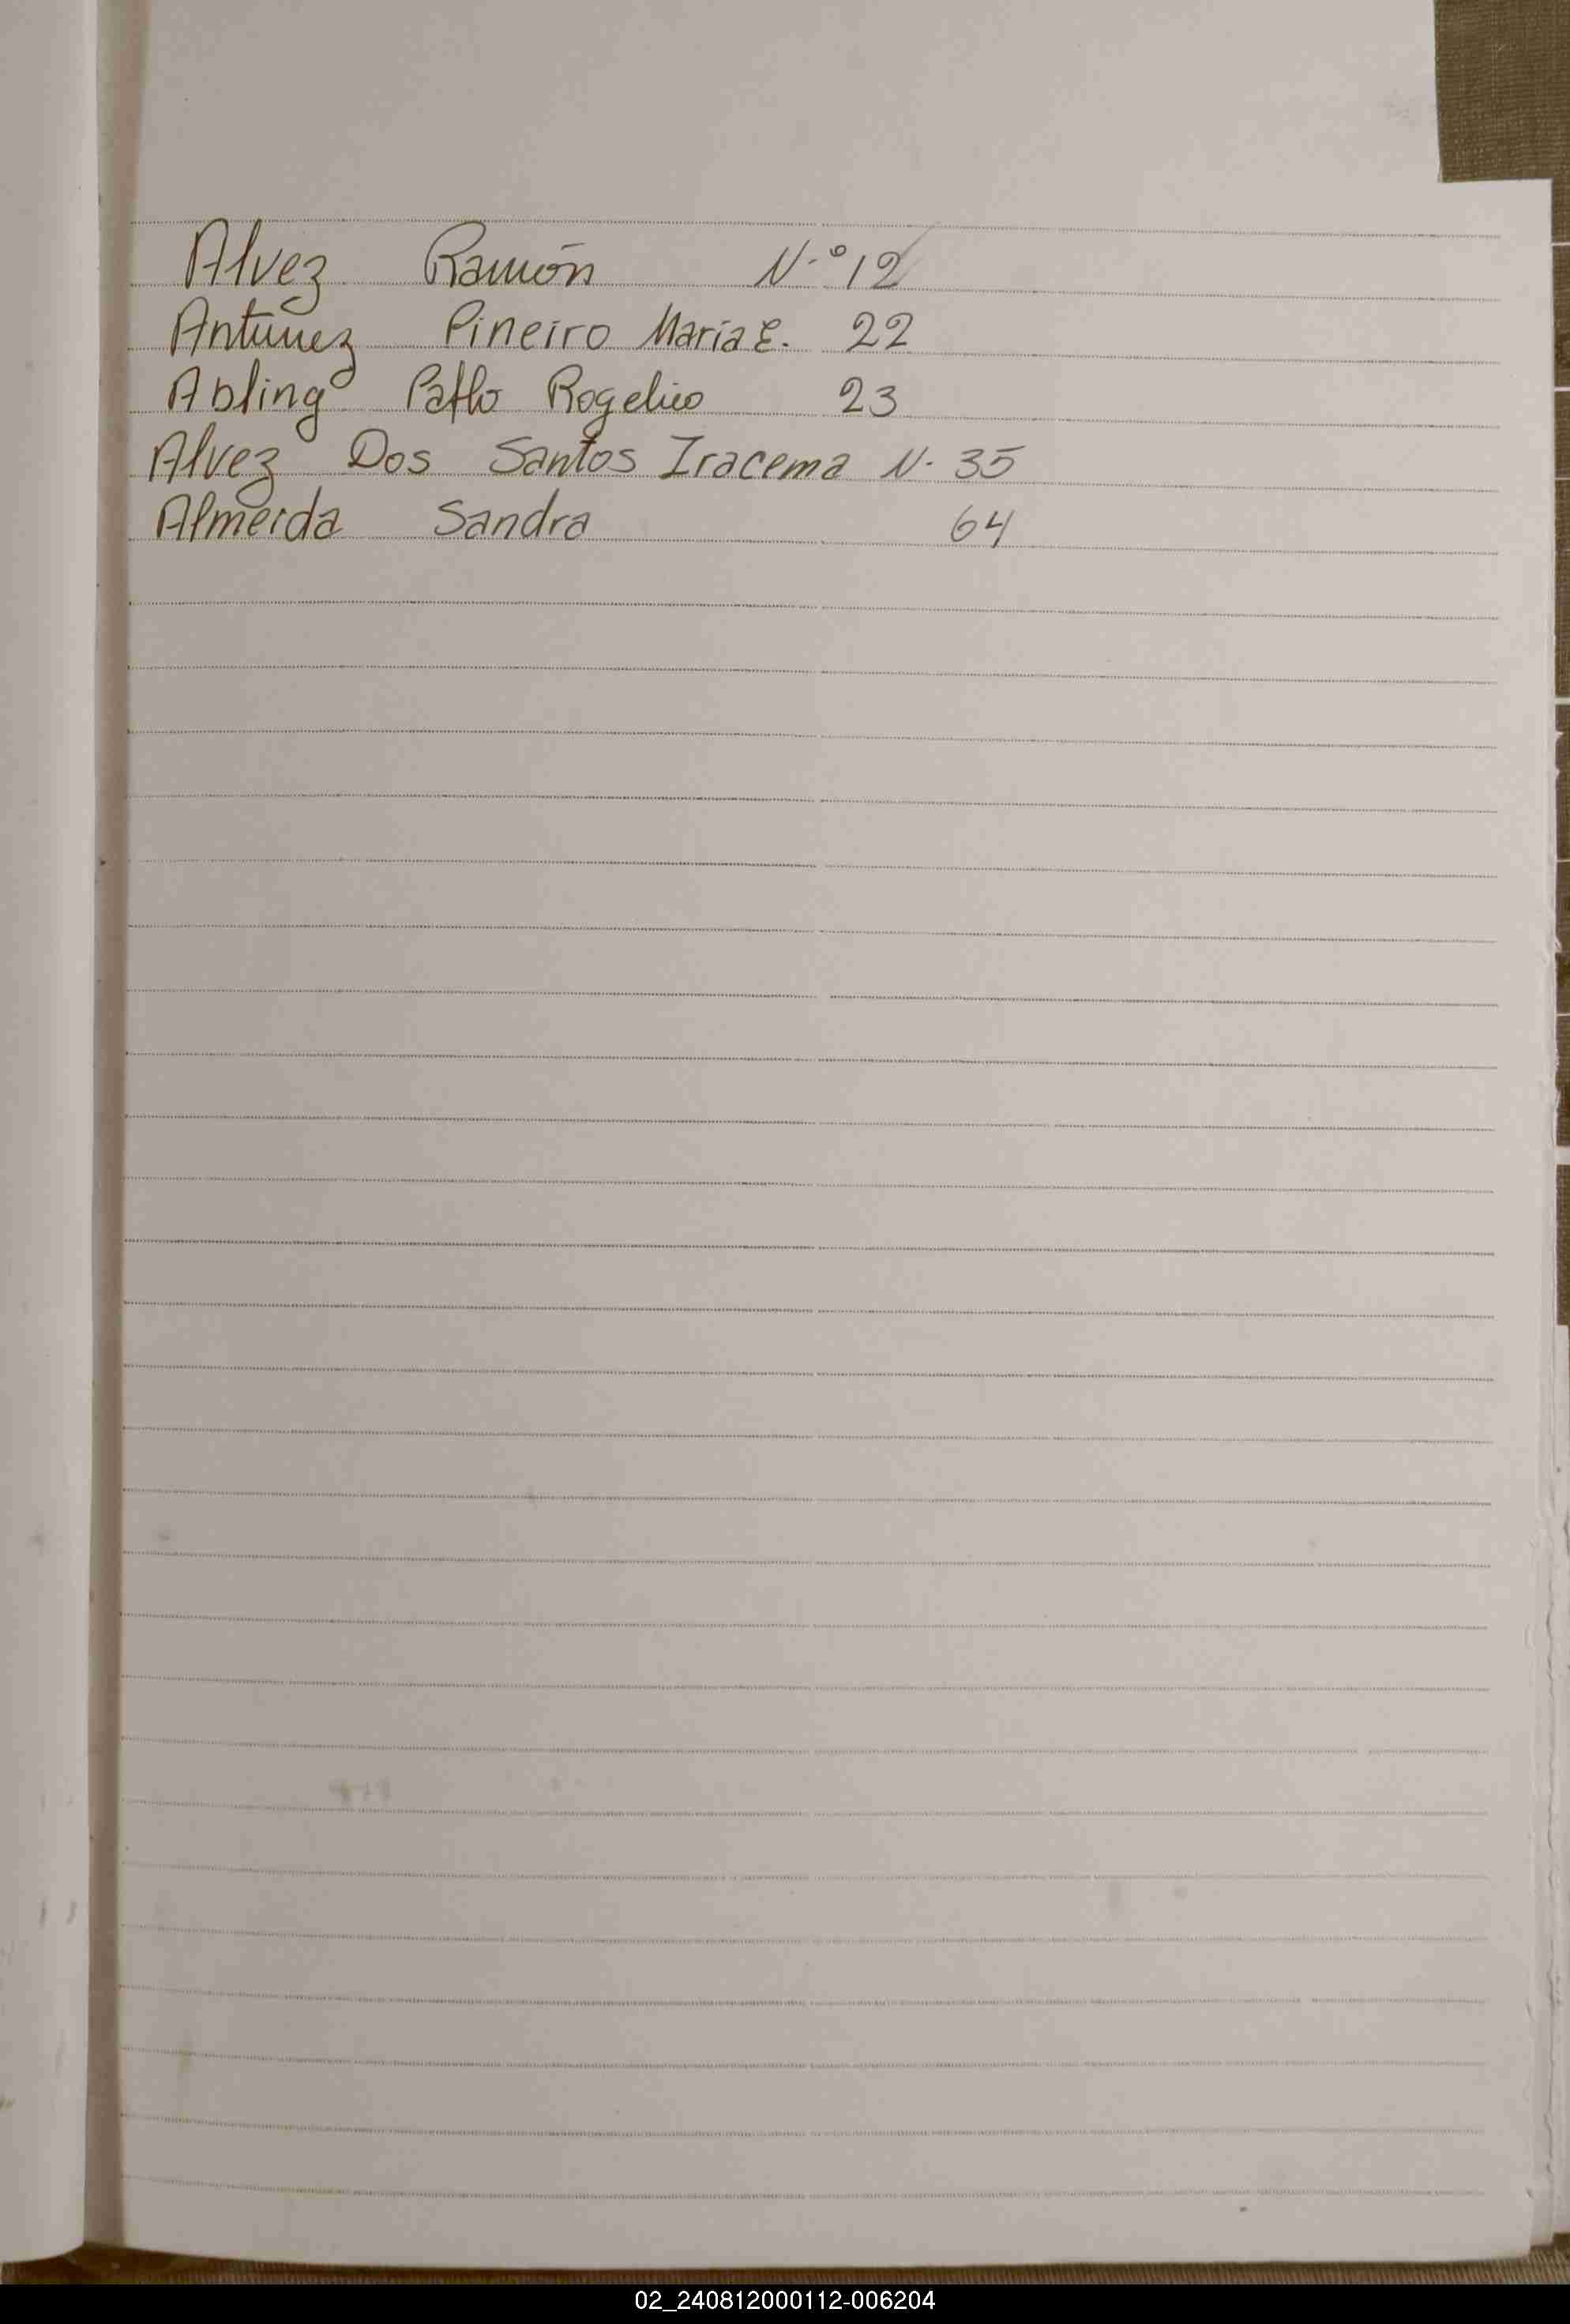 Alvez Ramón N.º 12
Antúnez Pineiro María E. 22
Abling Pablo Rogelio 23
Alvez Dos Santos Iracema N. 35
Almeida Sandra 64
02_240812000112-006204